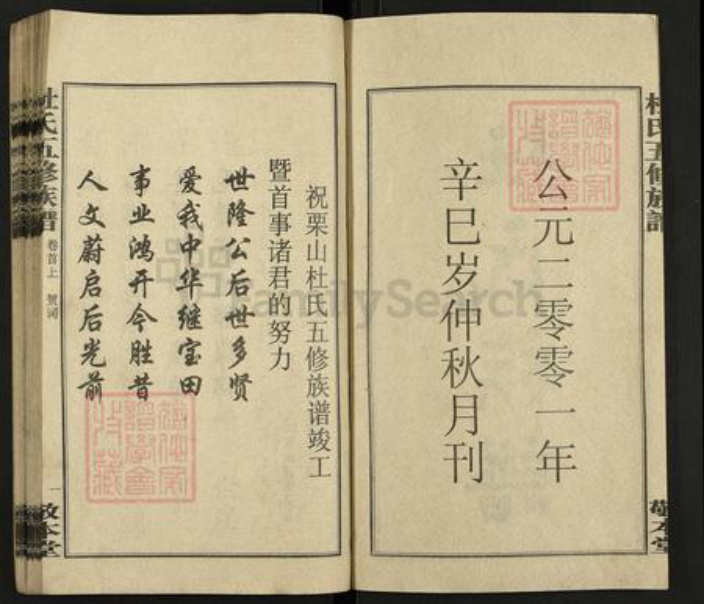 杜氏五修族譜
公元二零零一年
辛巳岁仲秋月刊
敬本堂
祝栗山杜氏五修族谱竣工
暨首事诸君的努力
世隆公后世多贤
爱我中华继宝田
事业鸿开今胜昔
人文蔚启后光前
杜氏五修族譜
卷首上 贺词
一
敬本堂
FamilySearch